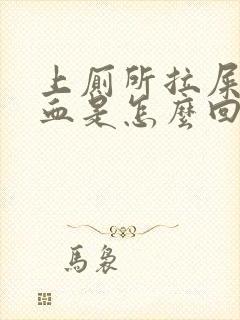 上厕所拉屎
血是怎麼回
馬裊